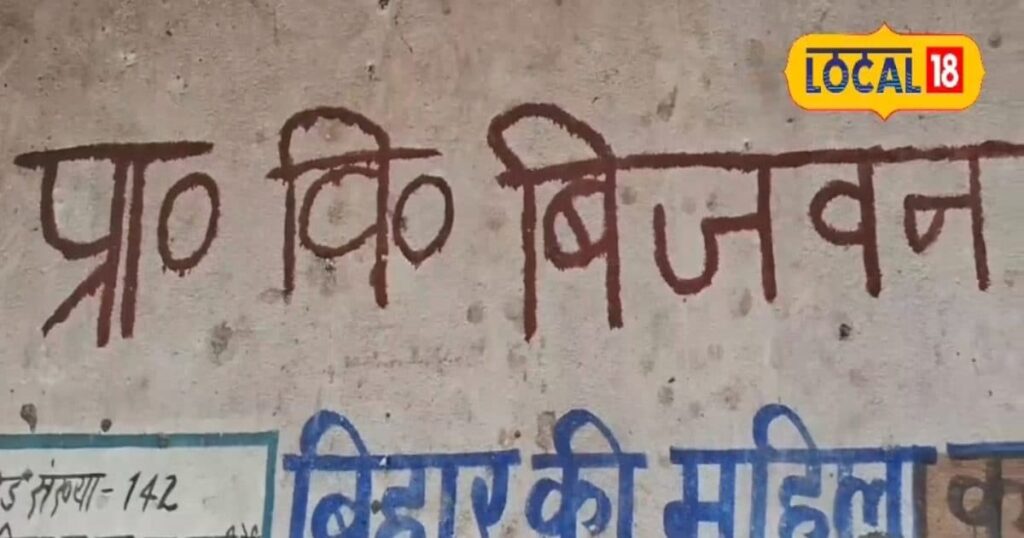 LOCAL 18
प्रा० वि० बिजवन
संख्या- 142
बिहार की महिला